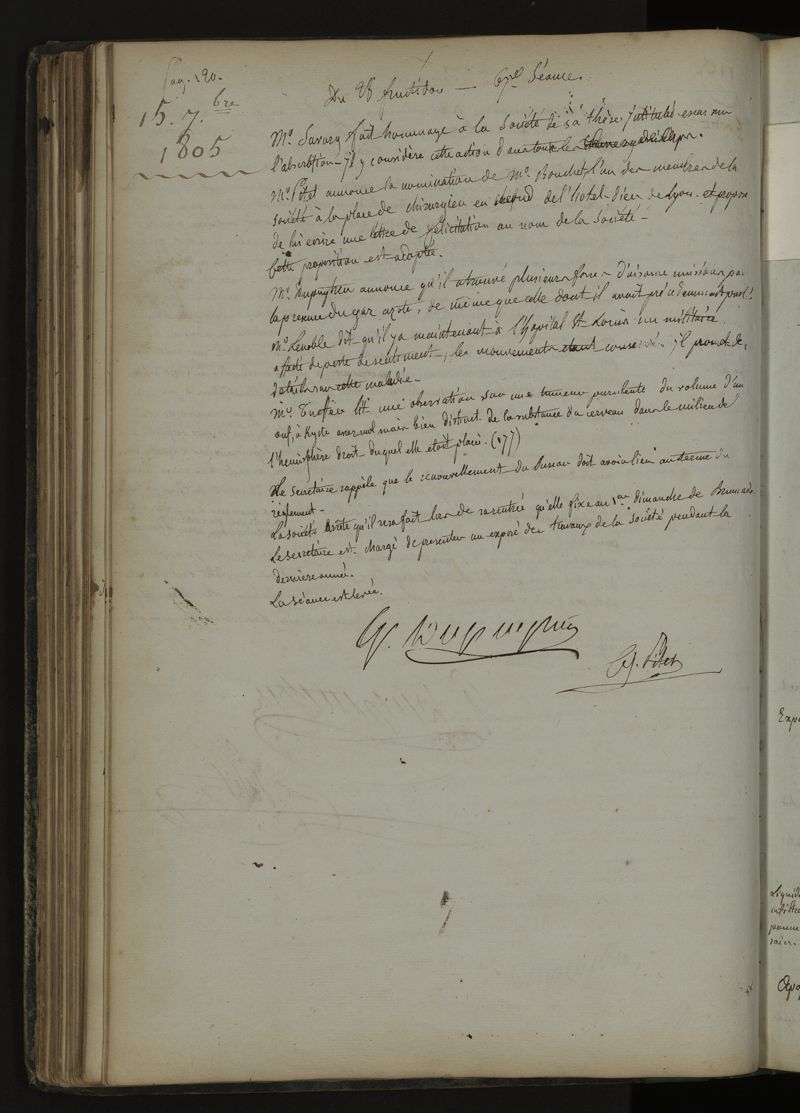 Pag. 190.
15. 7.bre
1805
Du 28 fructidor — 67e Séance.
Mr. Savary fait hommage à la Société de sa thèse, intitulée essai sur
l'absorption — il y considère cette action dans tous les
Mr. Pétel annonce la nomination de Mr. Bouchet l'un des membres de la
société à la place de chirurgien en second de l'hôtel-Dieu de Lyon. et propose
de lui écrire une lettre de félicitation au nom de la Société —
Cette proposition est adoptée.
Mr. Dupuytren annonce qu'il a trouvé plusieurs fosses d'aisance
la présence du gaz azote, de même que celle dont il avait précédemment parlé.
Mr. Lenoble dit qu'il y a maintenant à l'hopital St Louis un militaire
affecté de perte de sentiment, les mouvements étant conservés. il promet des
détails sur cette maladie.
Mr. lit une observation sur une tumeur purulente du volume d'un
œuf, à Kyste assez mol mais bien distinct de la substance du cerveau dans le milieu de
l'hémisphère droit duquel elle etoit placée. (177)
Le Secrétaire rappèle que le renouvellement du bureau doit avoir lieu au terme du
règlement —
La société arrête qu'il sera fait lors de sa rentrée qu'elle fixe au 1er dimanche de Brumaire.
Le secrétaire est chargé de présenter un exposé des travaux de la société pendant la
dernière année.
La séance est levée.
G. Dupuytren